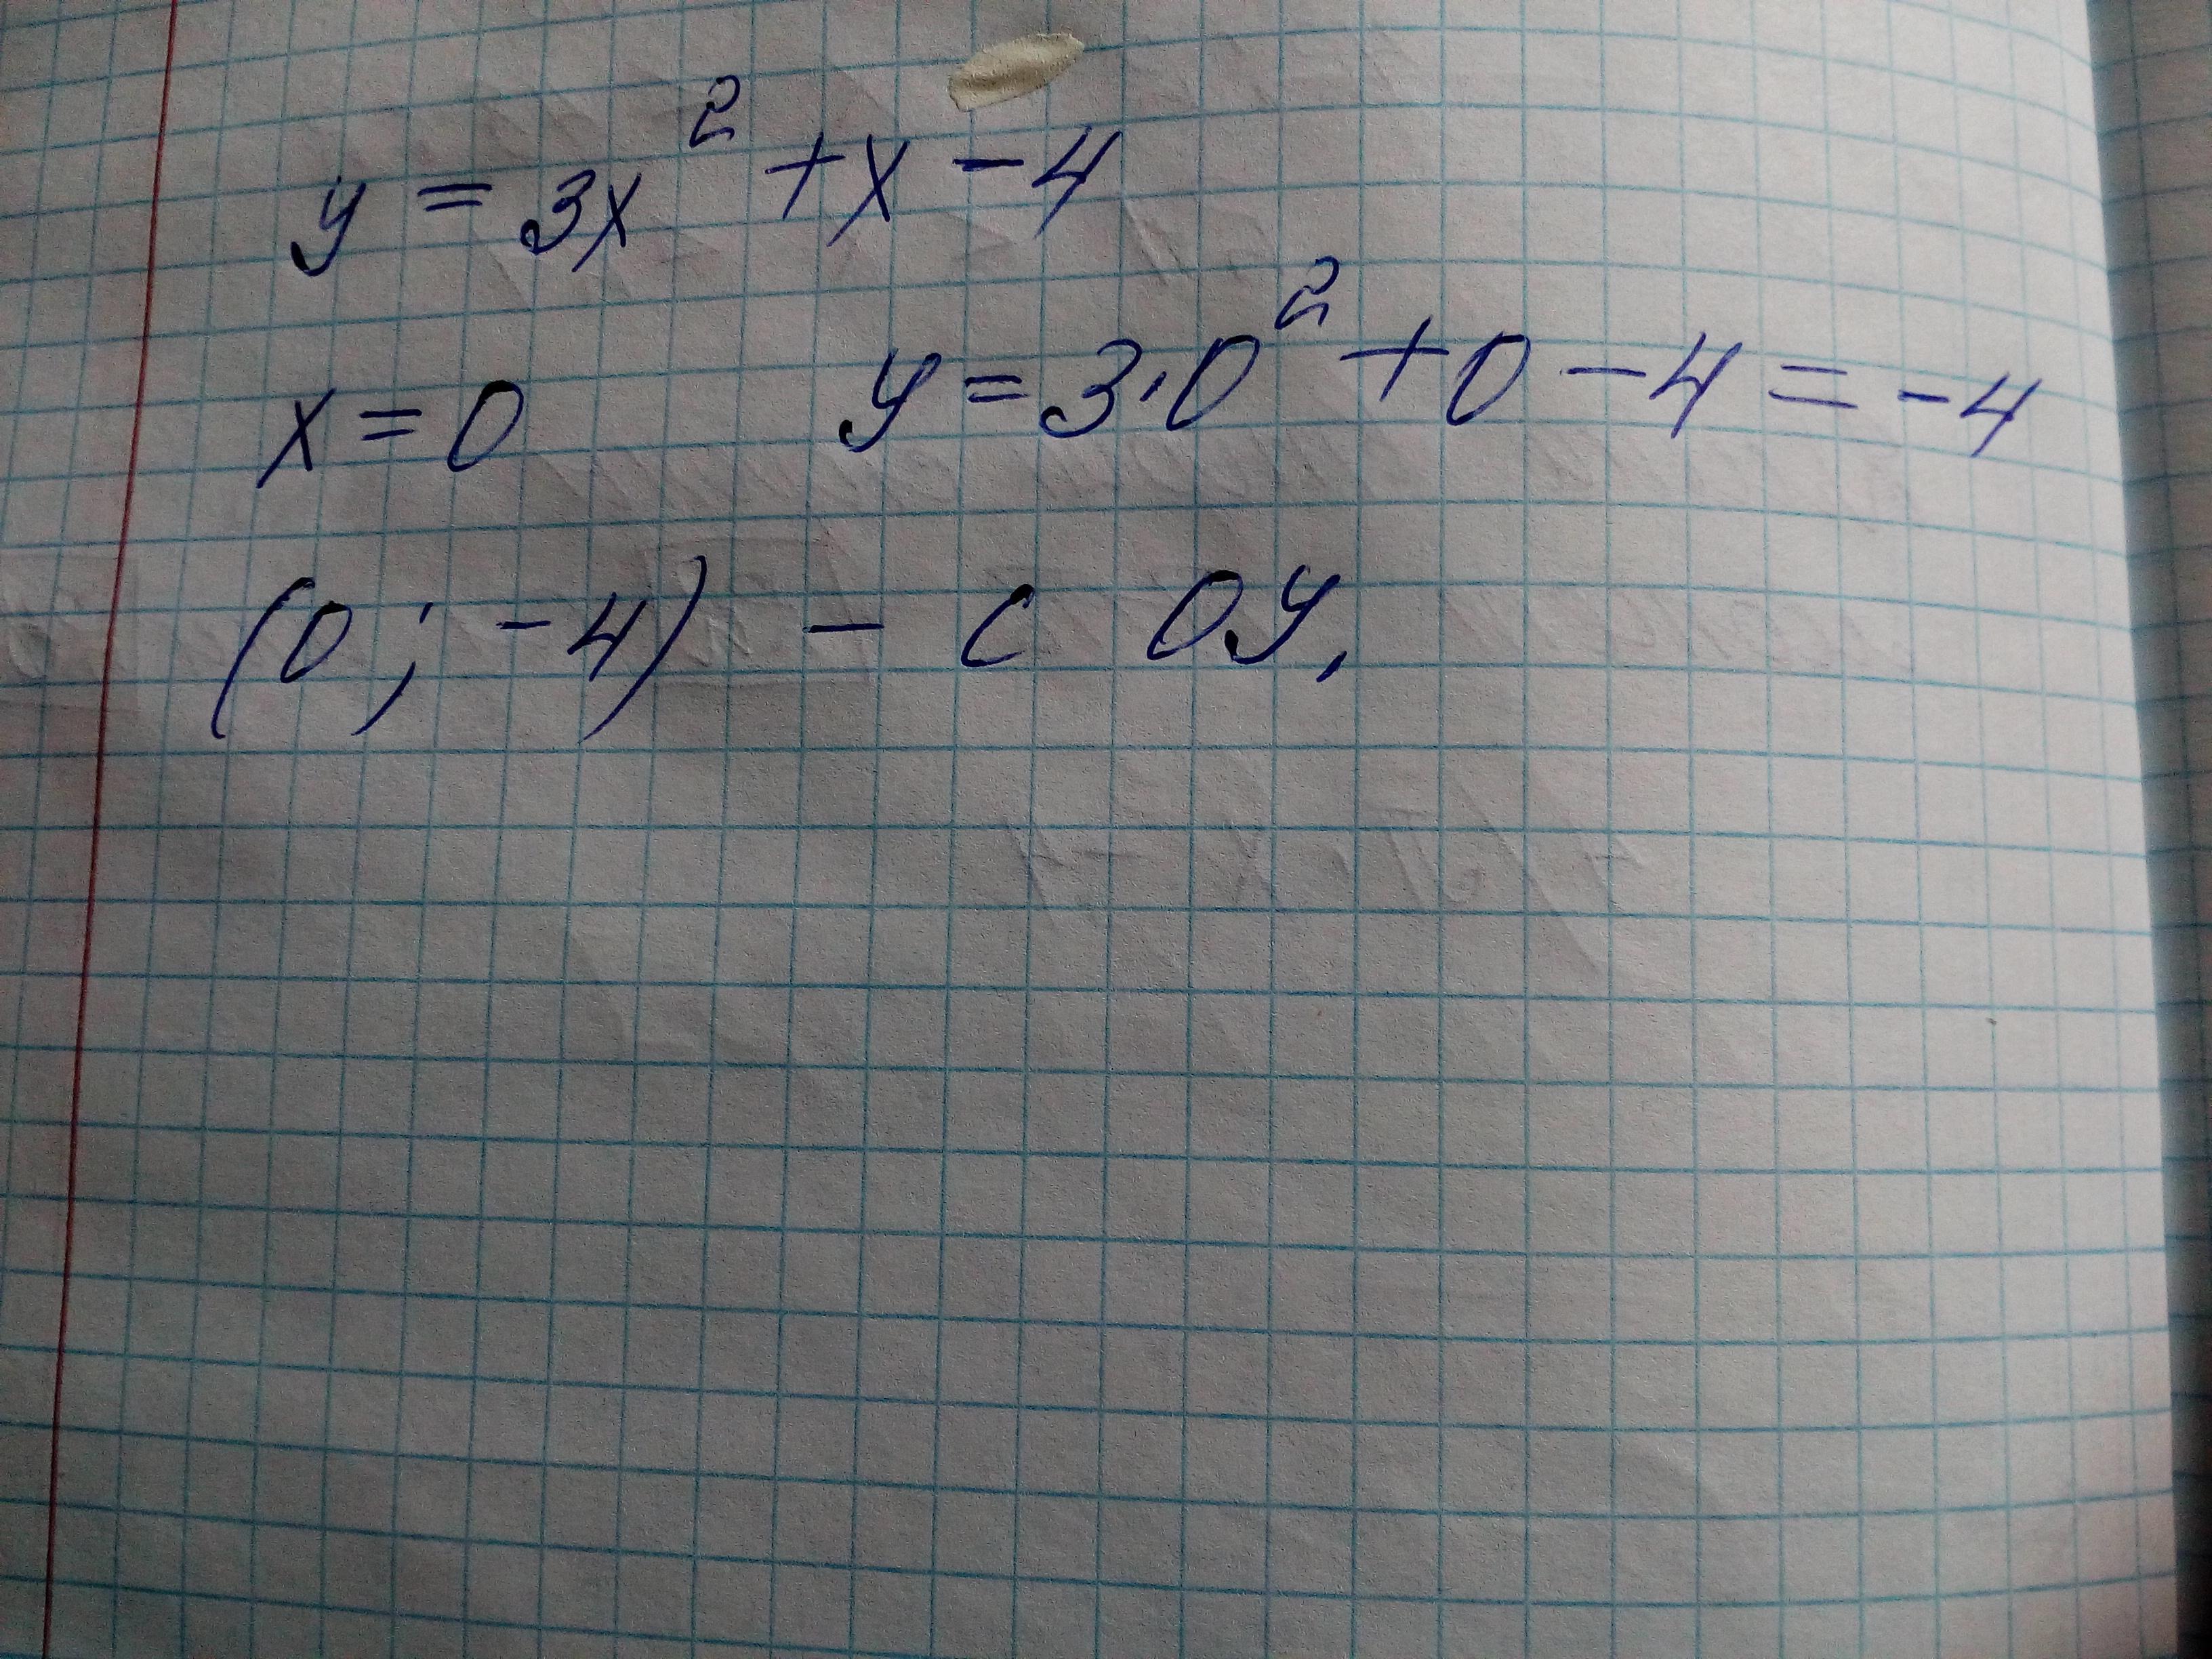 y = 3x² + x - 4
x = 0 y = 3·0² + 0 - 4 = -4
(0; -4) - с ОУ,